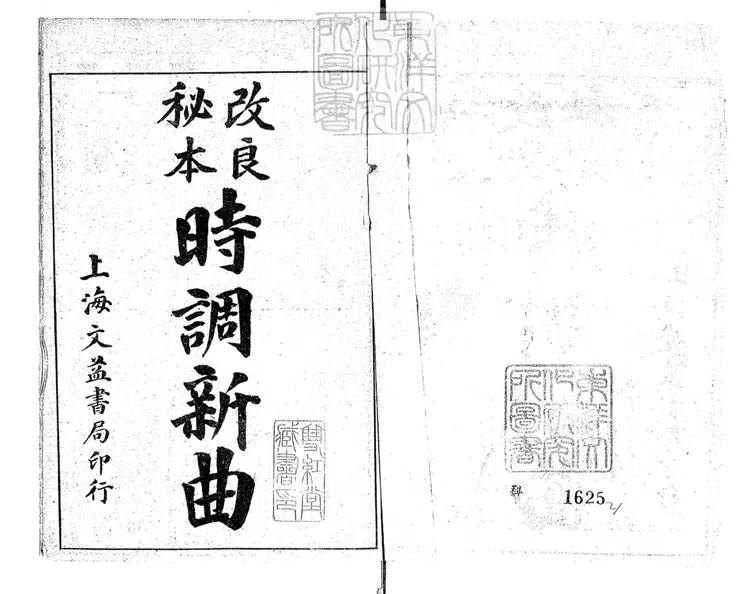 東洋文
化研究
所圖書
改良
秘本
時調新曲
上海文益書局印行
雙紅堂
藏書印
東洋文
化研究
所圖書
科
1625